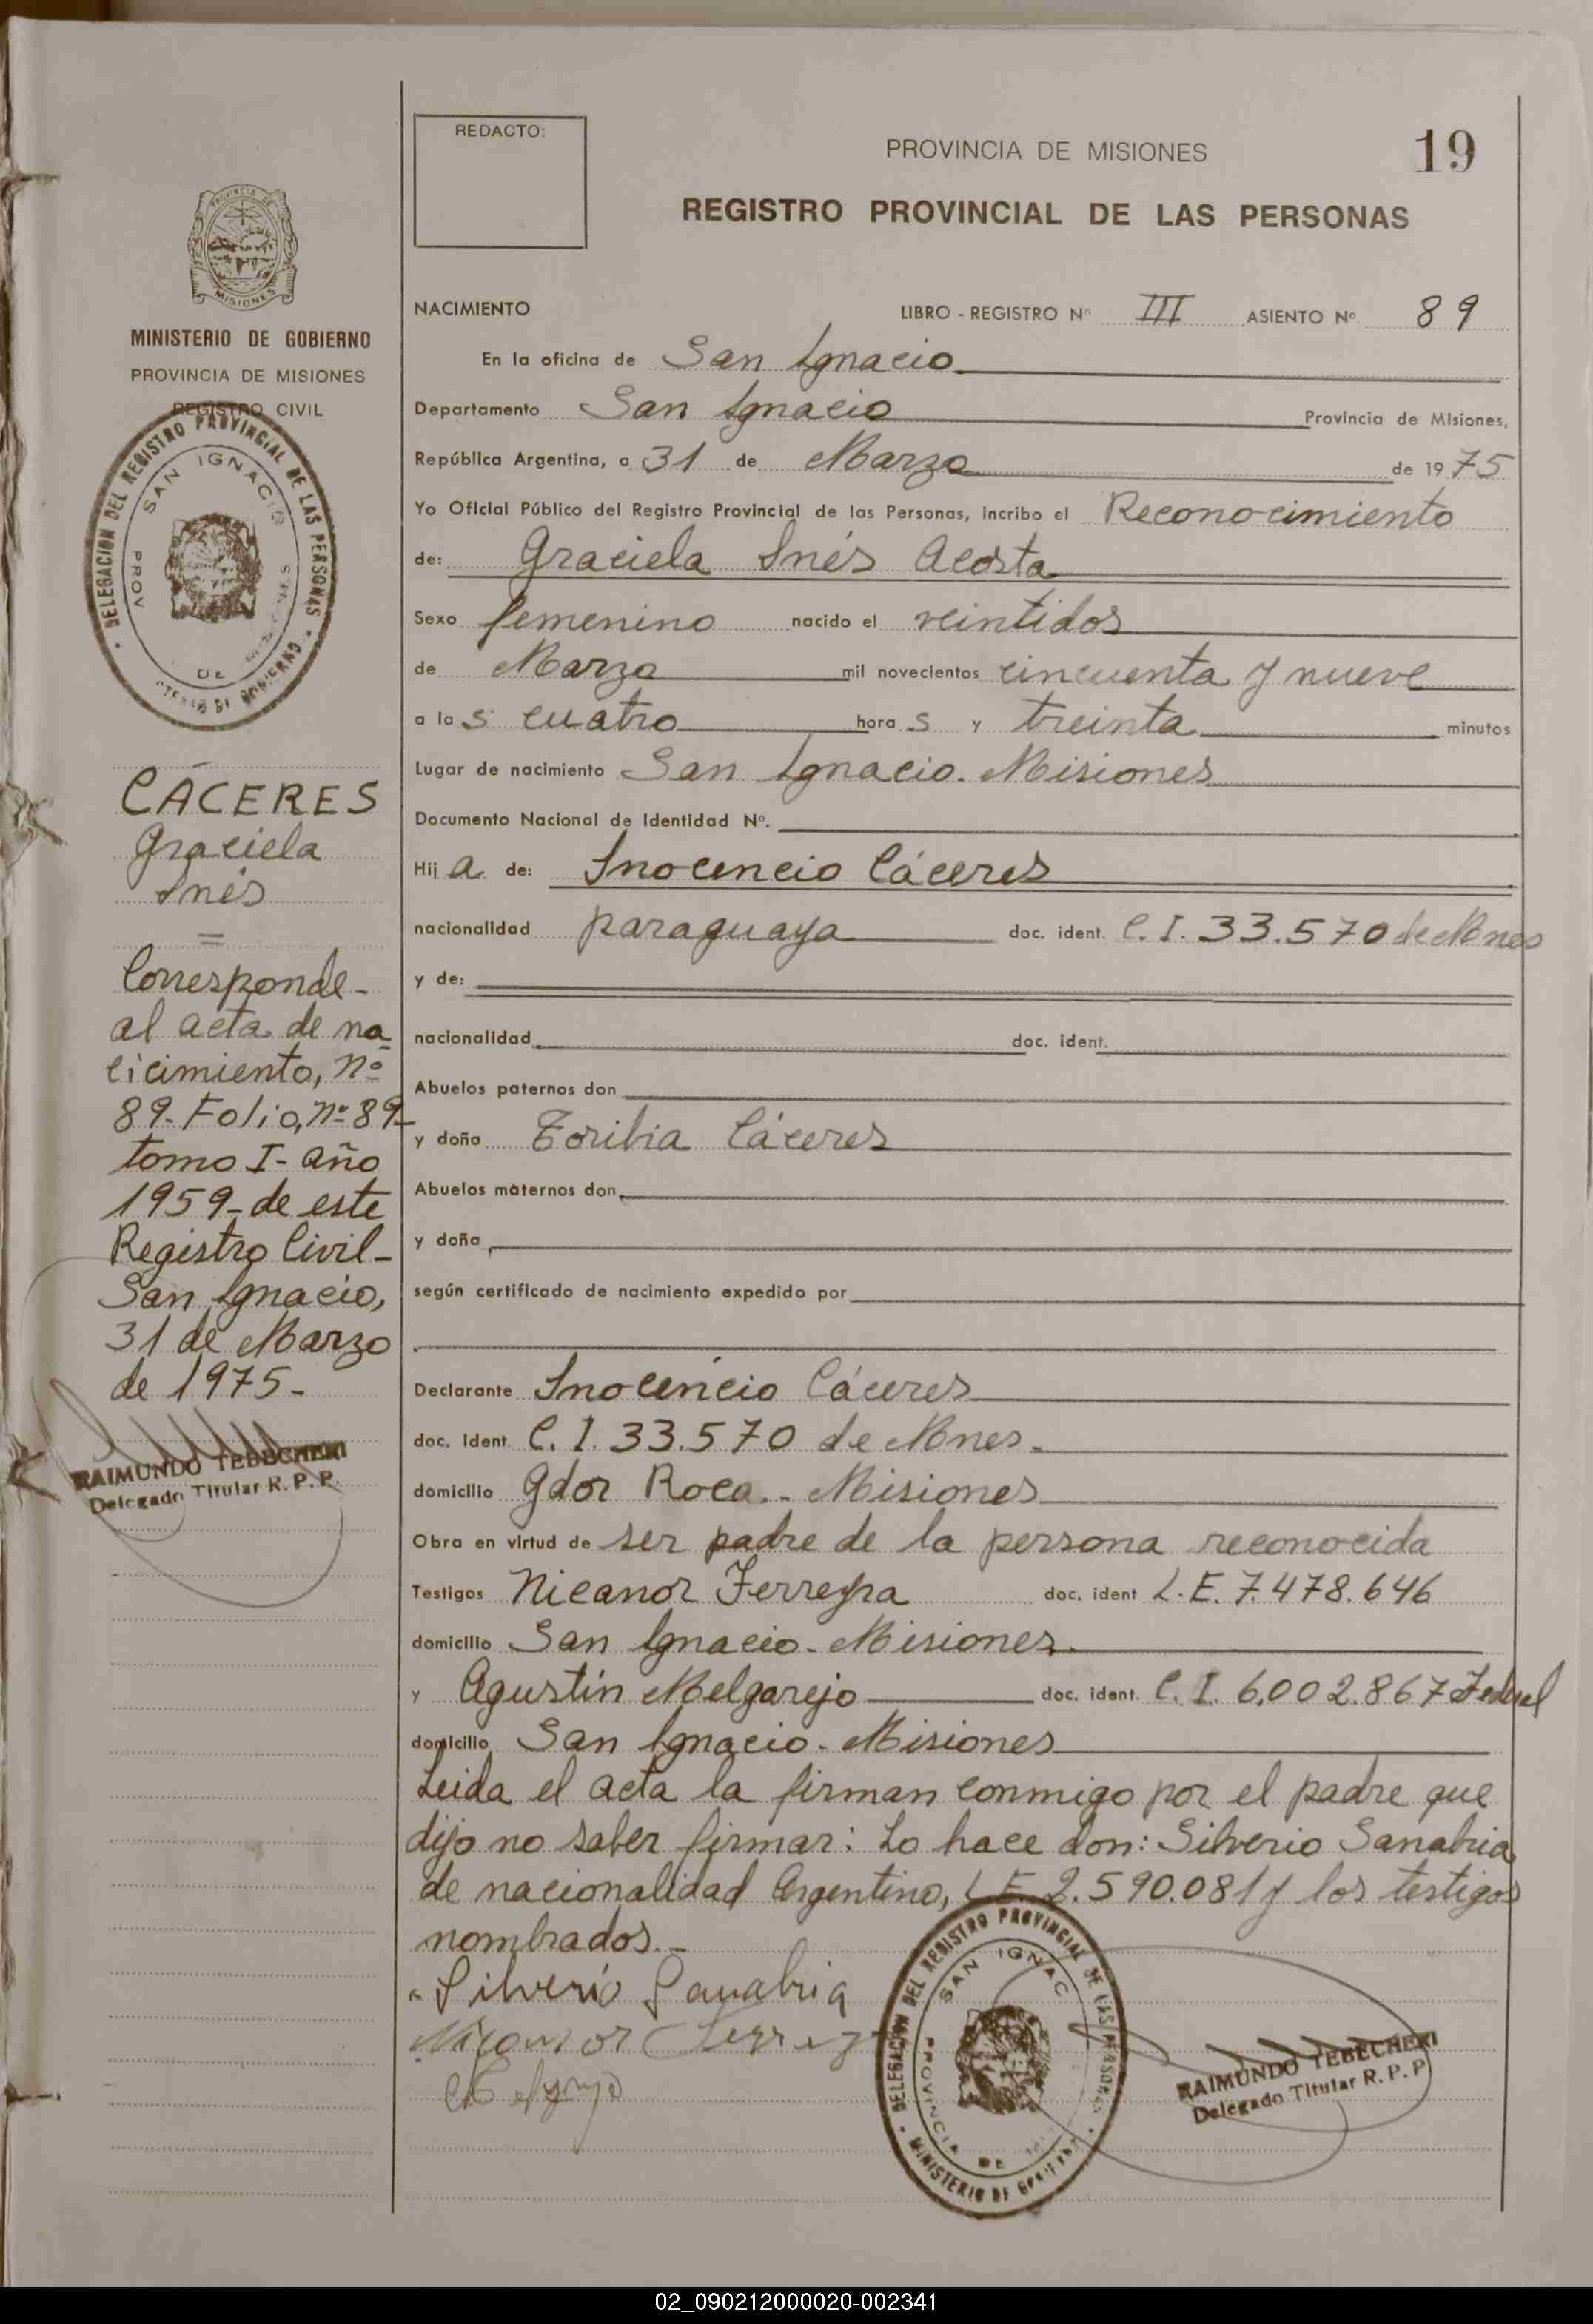 REDACTO:
PROVINCIA DE MISIONES
19
REGISTRO PROVINCIAL DE LAS PERSONAS
PROVINCIA DE
MISIONES
MINISTERIO DE GOBIERNO
PROVINCIA DE MISIONES
REGISTRO CIVIL
DELEGACION DEL REGISTRO PROVINCIAL DE LAS PERSONAS
SAN IGNACIO
PROV DE MISIONES
CÁCERES
Graciela
Inés
=
Corresponde-
al acta de na
cicimiento, nº
89- Folio, nº 89-
tomo I- año
1959- de este
Registro Civil-
San Ignacio,
31 de Marzo
de 1975-
RAIMUNDO TEBECHERI
Delegado Titular R. P. P.
NACIMIENTO LIBRO - REGISTRO Nº III ASIENTO Nº 89
En la oficina de San Ignacio
Departamento San Ignacio Provincia de Misiones,
República Argentina, a 31 de Marzo de 19 75
Yo Oficial Público del Registro Provincial de las Personas, incribo el Reconocimiento
de: Graciela Inés Acosta
Sexo femenino nacido el veintidos
de Marzo mil novecientos cincuenta y nueve
a las cuatro horas y treinta minutos
Lugar de nacimiento San Ignacio. Misiones
Documento Nacional de Identidad Nº.
Hija de: Inocencio Cáceres
nacionalidad paraguaya doc. ident. C. I. 33.570 de Mnes
y de:
nacionalidad doc. ident.
Abuelos paternos don
y doña Toribia Cáceres
Abuelos maternos don
y doña
según certificado de nacimiento expedido por
Declarante Inocencio Cáceres
doc. Ident. C. I. 33.570 de Mnes.
domicilio Gdor Roca.- Misiones
Obra en virtud de ser padre de la persona reconocida
Testigos Nicanor Ferreyra doc. ident L. E. 7.478.646
domicilio San Ignacio- Misiones.
y Agustín Melgarejo doc. ident. C. I. 6.002.867 Federal
domicilio San Ignacio- Misiones
Leida el acta la firman conmigo por el padre que
dijo no saber firmar: Lo hace don: Silverio Sanabria
de nacionalidad Argentino, L E 2.590.081 y los testigos
nombrados.-
Silverio Sanabria
Nicanor
DELEGACION DEL REGISTRO PROVINCIAL DE LAS PERSONAS
SAN IGNAC
PROVINCIA DE
MINISTERIO DE GOBIERNO
RAIMUNDO TEBECHERI
Delegado Titular R. P. P
02_090212000020-002341